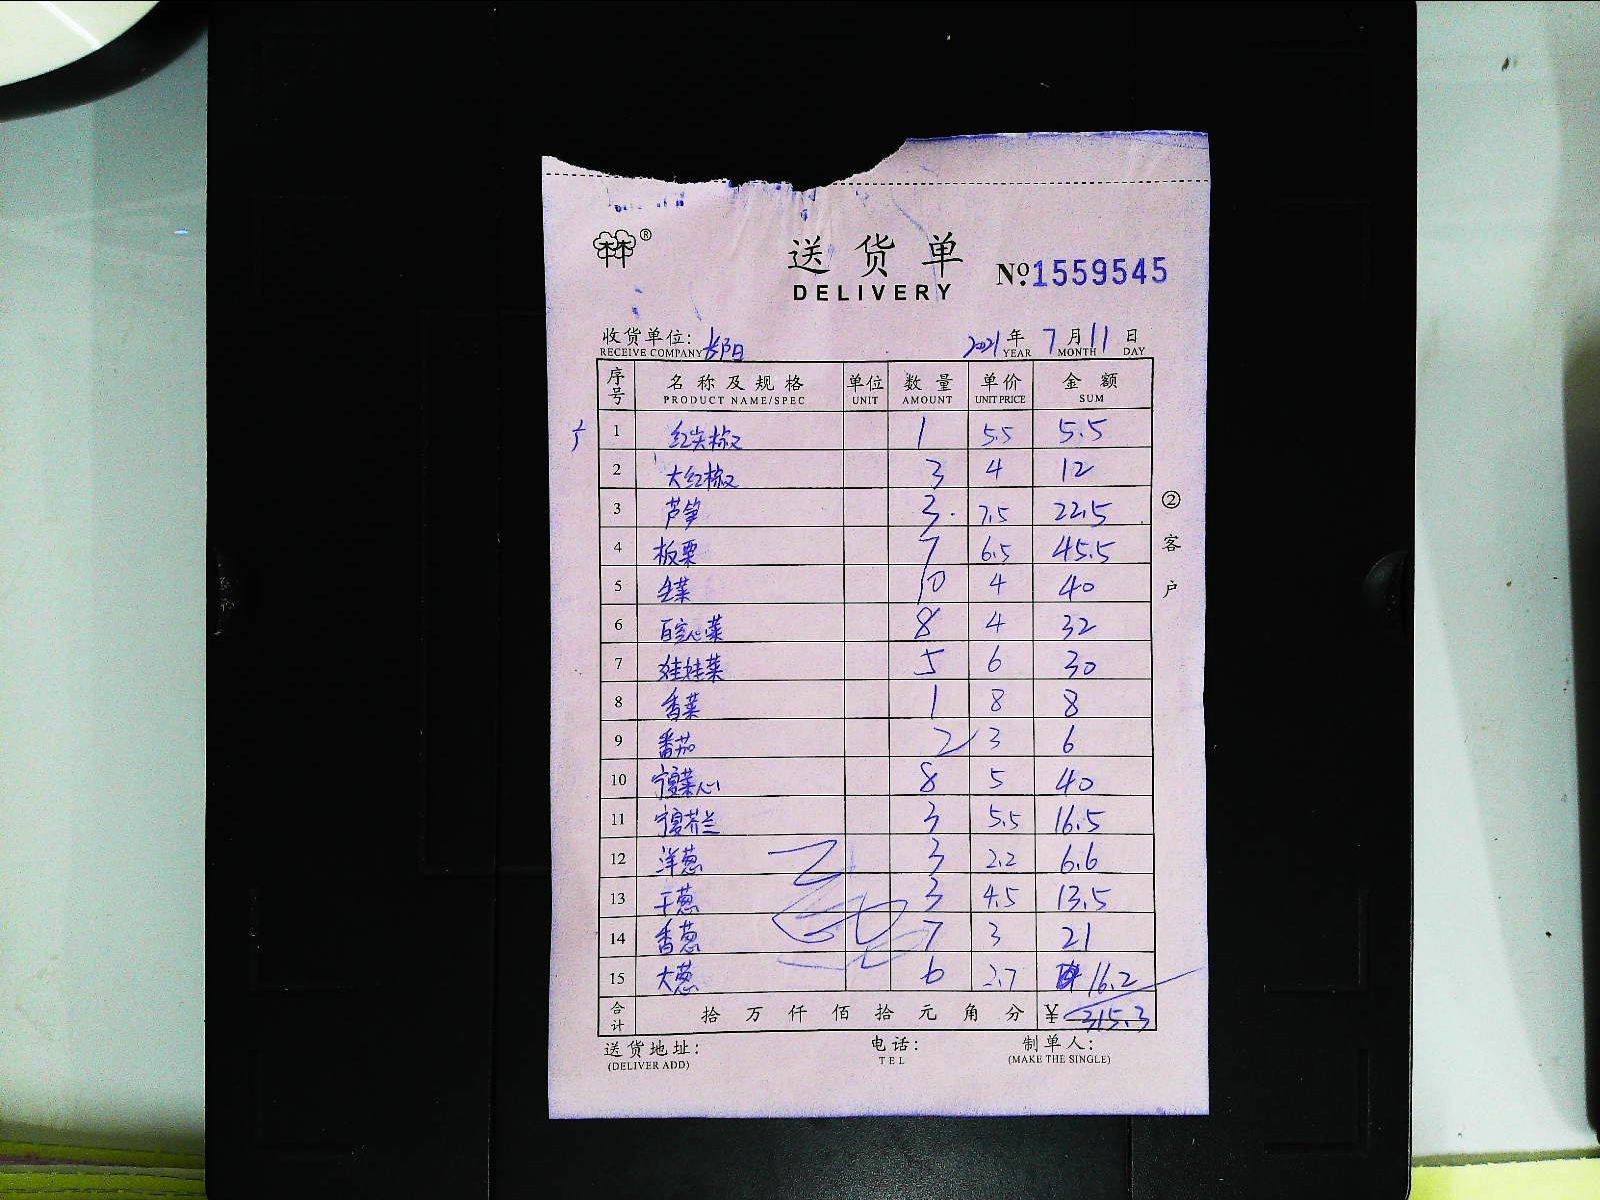 送货单 №1559545
DELIVERY
收货单位: 长阳 2021年 7月 11日
RECEIVE COMPANY YEAR MONTH DAY
序号 名称及规格 单位 数量 单价 金额
PRODUCT NAME/SPEC UNIT AMOUNT UNIT PRICE SUM
1 红尖椒 1 5.5 5.5
2 大红椒 3 4 12
3 芦笋 3 7.5 22.5
4 板栗 7 6.5 45.5
5 生菜 10 4 40
6 包心菜 8 4 32
7 娃娃菜 5 6 30
8 香菜 1 8 8
9 番茄 2 3 6
10 宁夏菜心 8 5 40
11 宁夏芥兰 3 5.5 16.5
12 洋葱 3 2.2 6.6
13 干葱 3 4.5 13.5
14 香葱 7 3 21
15 大葱 6 2.7 16.2
合计 拾万仟佰拾元角分 ¥315.3
送货地址: 电话: 制单人:
(DELIVER ADD) TEL (MAKE THE SINGLE)
②客户